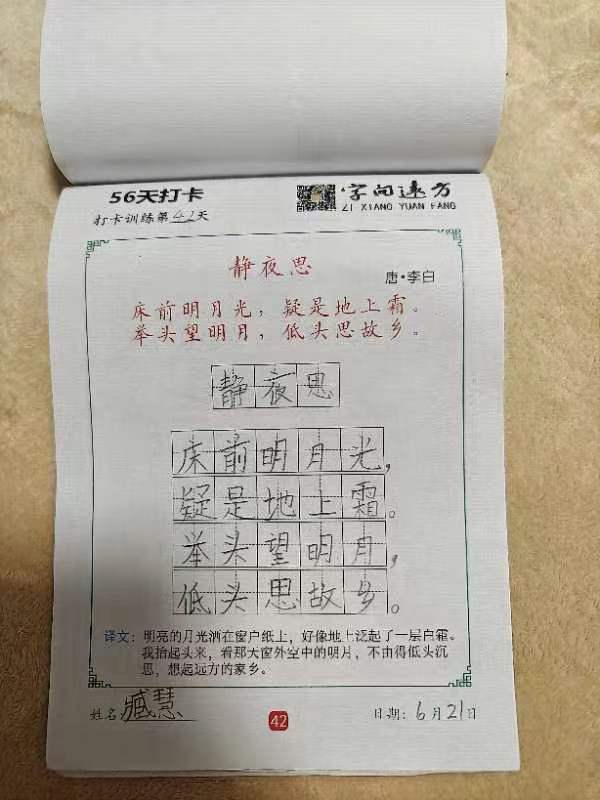 56天打卡
字向远方
ZI XIANG YUAN FANG
打卡训练第42天
静夜思
唐·李白
床前明月光，疑是地上霜。
举头望明月，低头思故乡。
静夜思
床前明月光，
疑是地上霜。
举头望明月，
低头思故乡。
译文：明亮的月光洒在窗户纸上，好像地上泛起了一层白霜。
我抬起头来，看那天窗外空中的明月，不由得低头沉
思，想起远方的家乡。
姓名 臧慧
42
日期：6月21日